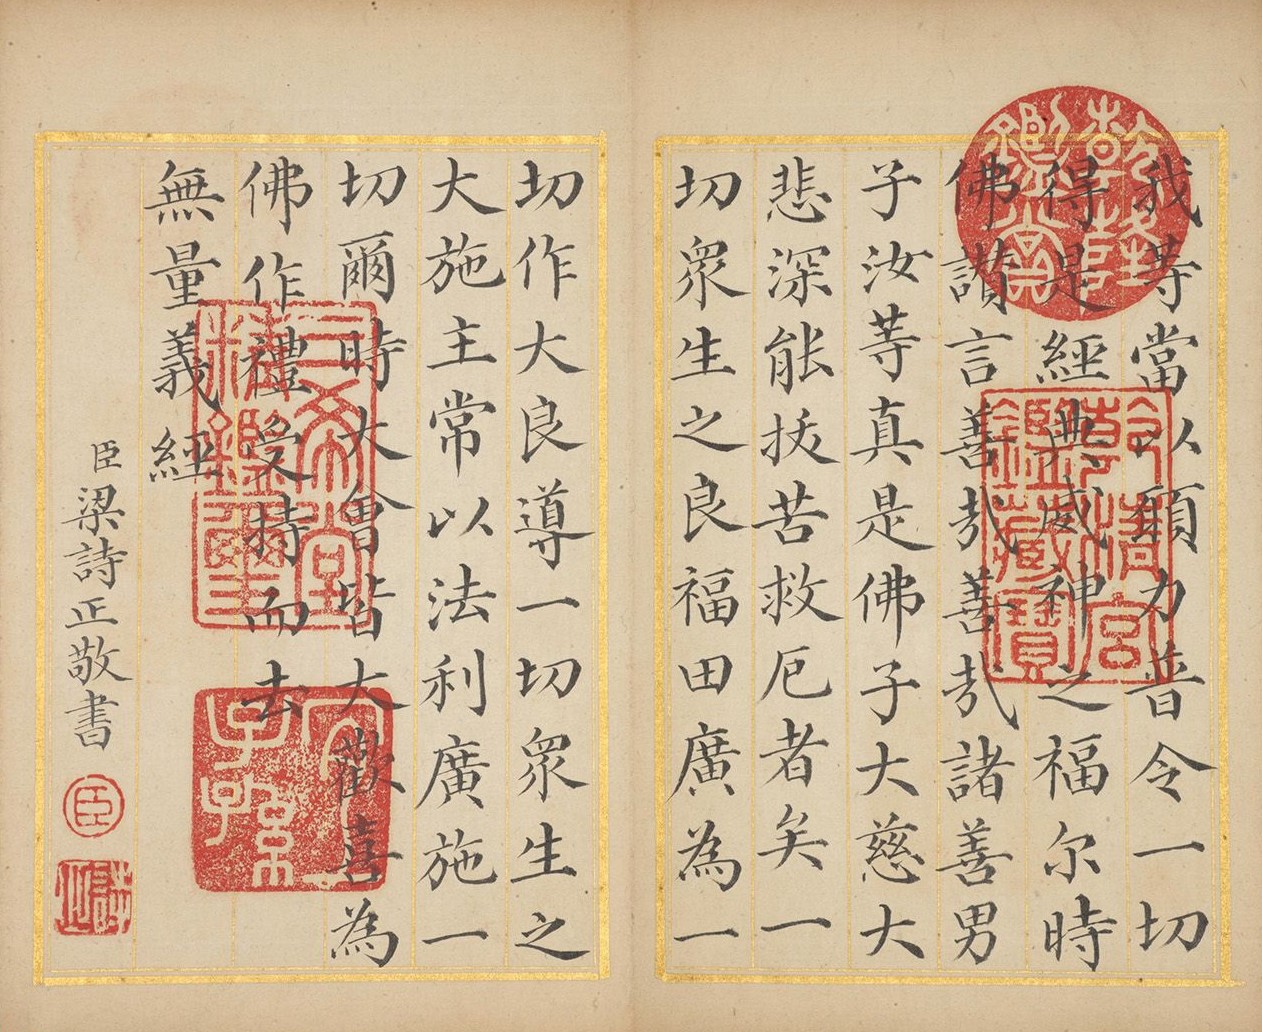 我等當以願力普令一切
得是經典威神之福尔時
佛讚言善哉善哉諸善男
子汝等真是佛子大慈大
悲深能拔苦救厄者矣一
切衆生之良福田廣為一
切作大良導一切衆生之
大施主常以法利廣施一
切爾時大會皆大歡喜為
佛作禮受持而去
無量義經
臣梁詩正敬書
乾隆鑑賞
乾清宮鑒藏寶
三希堂精鑑璽
宜子孫
臣
詩正